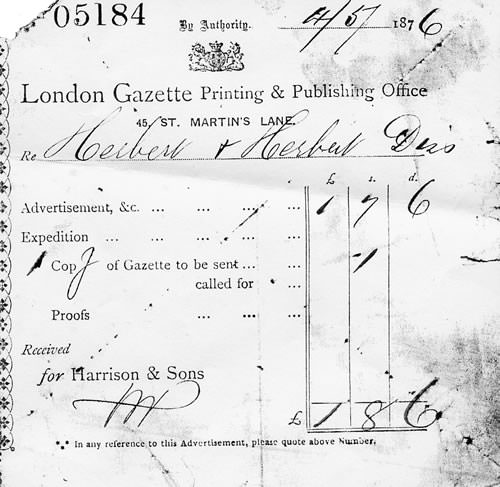 05184 By Authority. 4/5/ 1876
London Gazette Printing & Publishing Office
45, ST. MARTIN'S LANE.
Re Herbert & Herbert Diss
£ s. d.
Advertisement, &c. ... ... ... ... 1 7 6
Expedition ... ... ... ...
1 Copy of Gazette to be sent ... ... 1
called for ...
Proofs ... ... ...
Received
for Harrison & Sons
£ 1 8 6
*** In any reference to this Advertisement, please quote above Number.